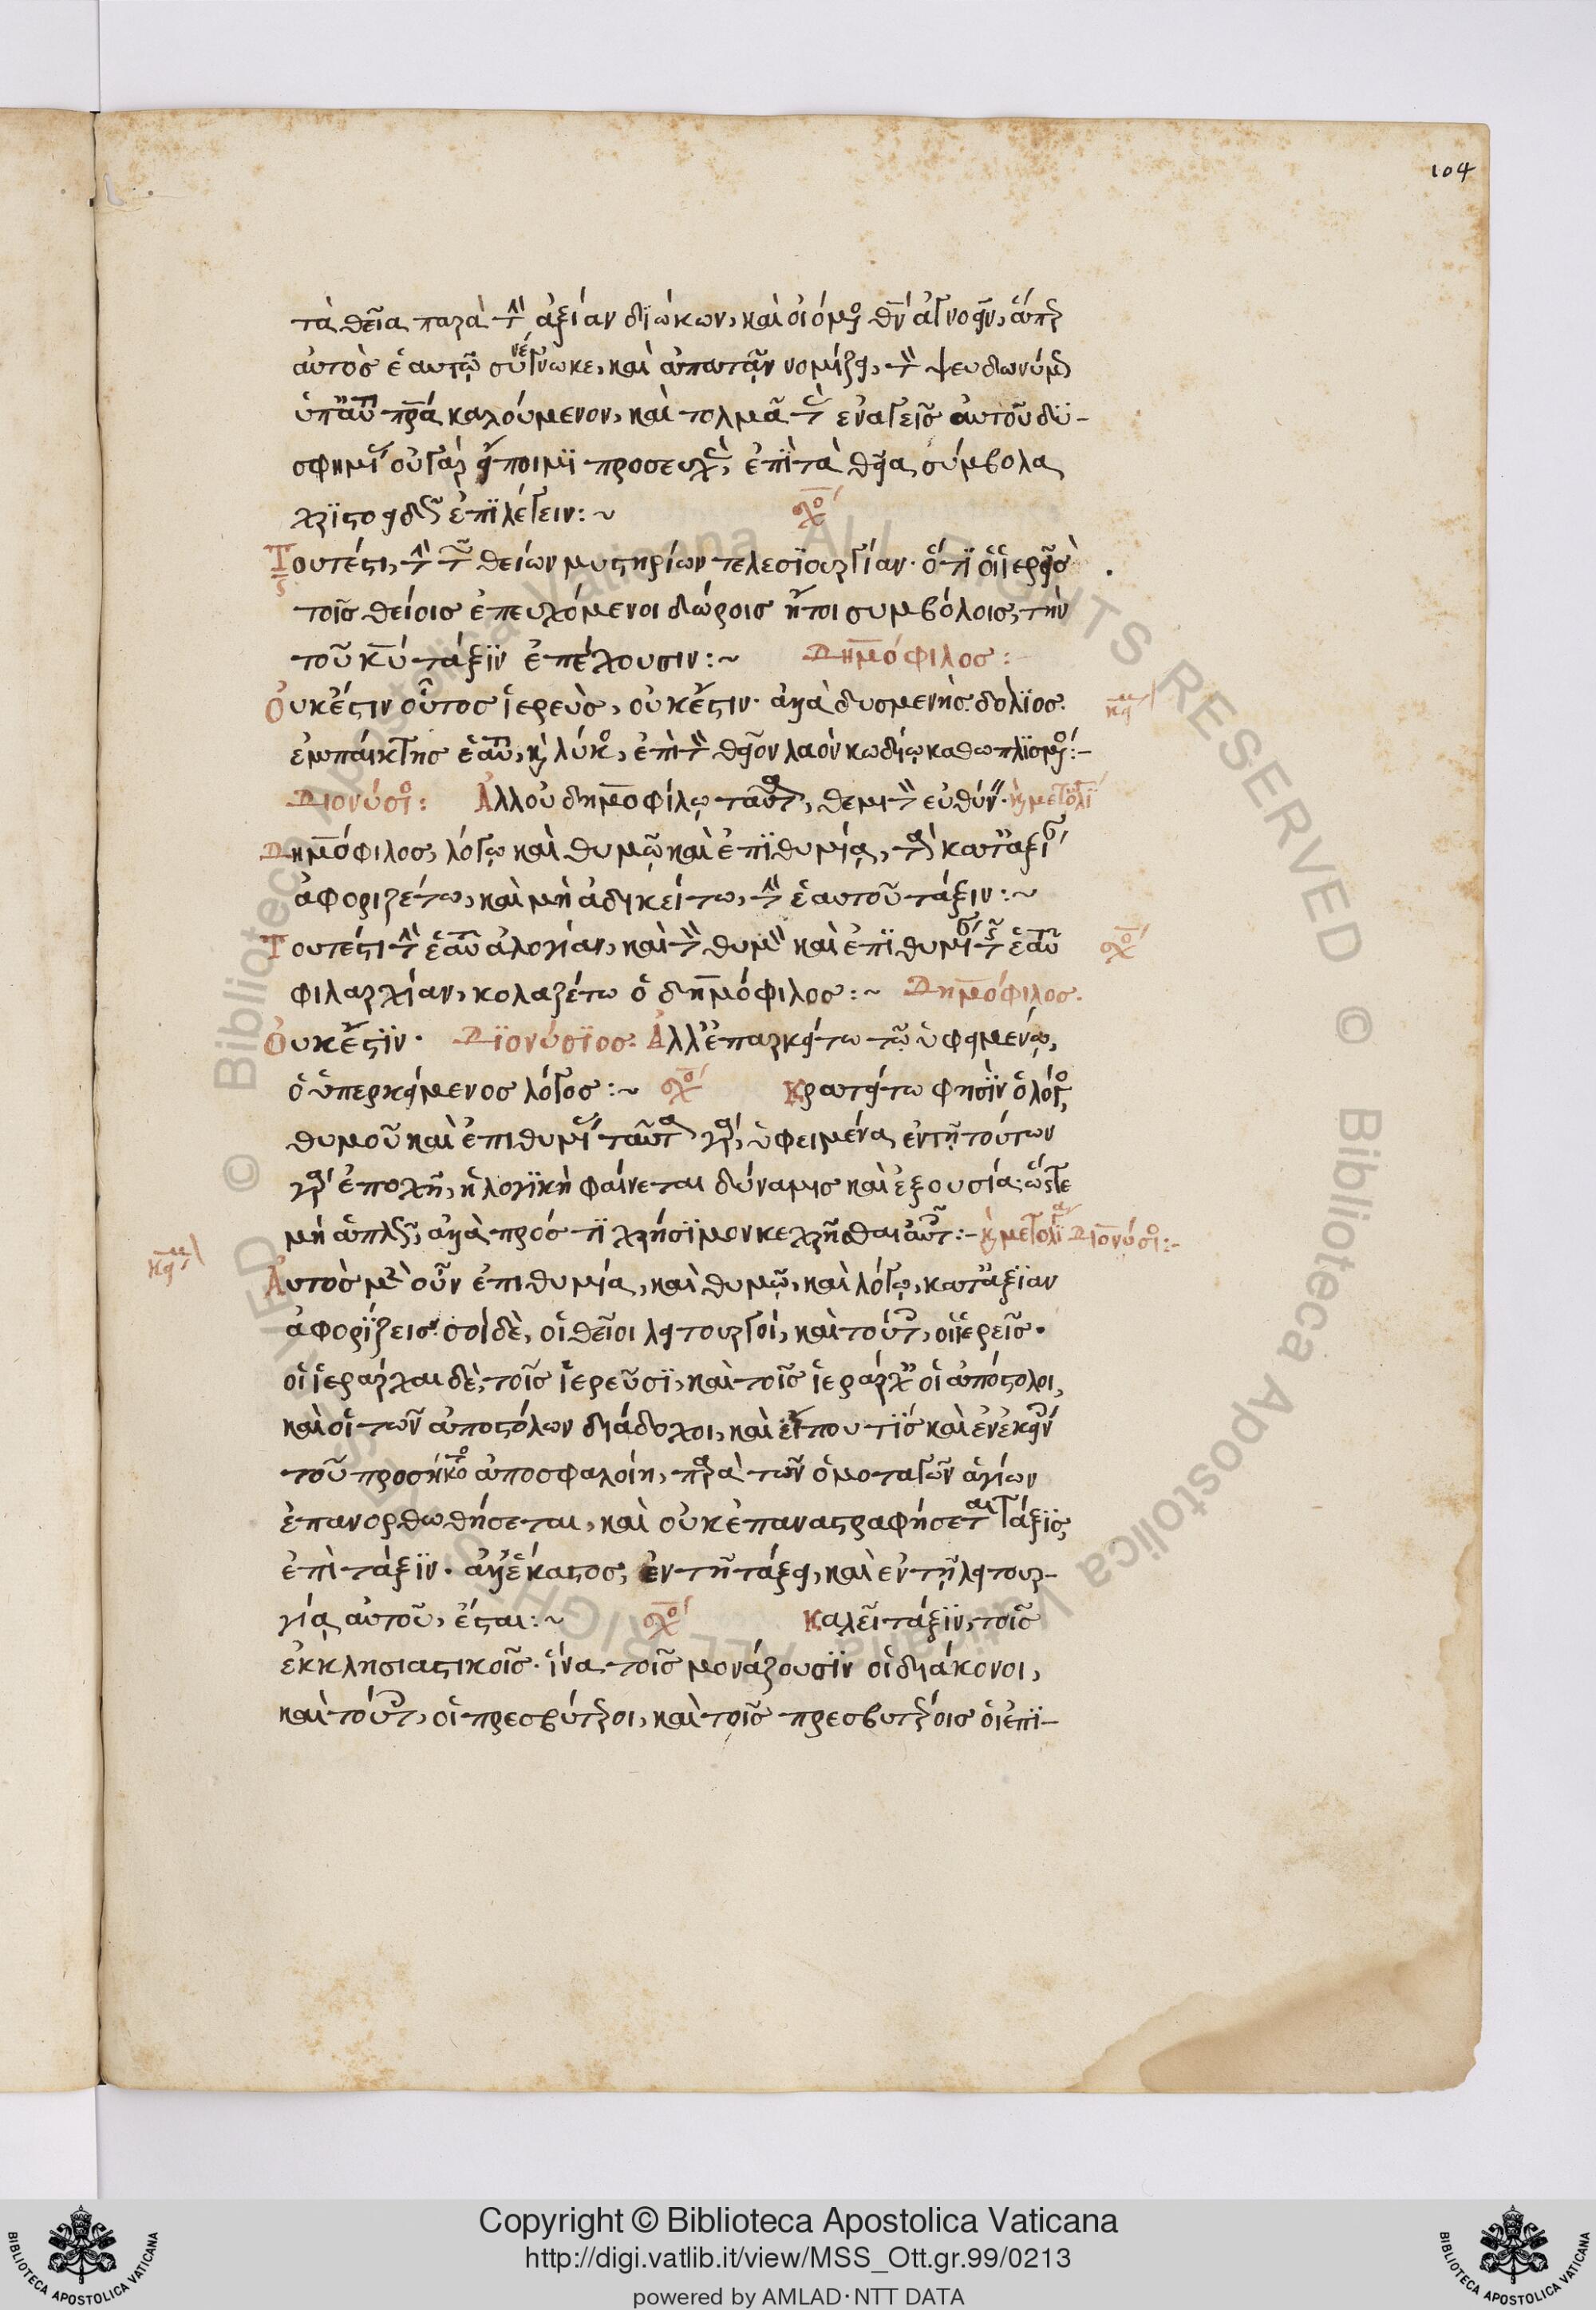 104
τὰ θεῖα παρὰ τὴν ἀξίαν διώκων, καὶ οἰόμενος θν ἀγνοεῖν, ἅπερ
αὐτὸς ἑαυτῷ συνέγνωκε, καὶ ἀπατᾶν νομίζει, τὸν ψευδωνύμως
ὑπ' αὐτοῦ πρα καλούμενον, καὶ τολμᾶ τὰς ἐναγεῖς αὐτοῦ δυ-
σφημίας οὐ γὰρ εἴποιμι προσευχὰς, ἐπὶ τὰ θεῖα σύμβολα
χριστοειδῶς ἐπιλέγειν:~ σχο
Τουτέστι, τὴν τῶν θείων μυστηρίων τελεσιουργίαν· ὅτι οἱ ἱερεῖς
τοῖς θείοις ἐπευχόμενοι δώροις ἤτοι συμβόλοις, τὴν
τοῦ κυ τάξιν ἐπέχουσιν:~ Δημόφιλος:
Οὐκ ἔστιν οὗτος ἱερεὺς, οὐκ ἔστιν· ἀλλὰ δυσμενὴς. δόλιος. κει
ἐμπαίκτης ἑαυτοῦ, καὶ λύκος, ἐπὶ τὸν θεῖον λαὸν κωδίῳ καθωπλισμένος:-
Διονύσιος: Ἀλλ' οὐ δημοφίλῳ ταῦτα, θεμιτὸν εὐθύνειν·
Δημόφιλος, λόγῳ καὶ θυμῷ καὶ ἐπιθυμίᾳ, τὰ κατ' ἀξίαν
ἀφοριζέτω, καὶ μὴ ἀδικείτω, τὴν ἑαυτοῦ τάξιν:~
Τουτέστι τὴν ἑαυτοῦ ἀλογίαν, καὶ τὸν θυμὸν καὶ ἐπιθυμίαν τῆς ἑαυτοῦ σχο
φιλαρχίαν, κολαζέτω ὁ δημόφιλος:~ Δημόφιλος.
Οὐκ ἔστιν· Διονύσιος: Ἀλλ' ἐπαρκείτω τῷ ὑφειμένῳ,
ὁ ὑπερκείμενος λόγος:~ σχο Κρατείτω φησὶν ὁ λόγος,
θυμοῦ καὶ ἐπιθυμίας ταῦτα γὰρ, ὑφειμένα ἐν τῇ τούτων
γὰρ ἐποχῇ, ἡ λογικὴ φαίνεται δύναμις καὶ ἐξουσία· ὥστε
μὴ ἁπλῶς, ἀλλὰ πρός τι χρήσιμον κεχρῆσθαι αὐτοῖς:- Διονύσιος:-
κει Αὐτὸς μὲν οὖν ἐπιθυμίᾳ, καὶ θυμῷ, καὶ λόγῳ, κατ' ἀξίαν
ἀφορίζεις. σοὶ δὲ, οἱ θεῖοι λειτουργοὶ, καὶ τούτοις, οἱ ἱερεῖς·
οἱ ἱεράρχαι δὲ, τοῖς ἱερεῦσι, καὶ τοῖς ἱεράρχαις οἱ ἀπόστολοι,
καὶ οἱ τῶν ἀποστόλων διάδοχοι, καὶ εἴ που τὶς καὶ ἐν ἐκείνοις
τοῦ προσήκοντος ἀποσφαλοίη, παρὰ τῶν ὁμοταγῶν ἁγίων
ἐπανορθωθήσεται, καὶ οὐκ ἐπαναστραφήσεται τάξις
ἐπὶ τάξιν· ἀλλ' ἕκαστος, ἐν τῇ τάξει, καὶ ἐν τῇ λειτουρ-
γίᾳ αὐτοῦ, ἔσται:~ σχο Καλεῖ τάξιν, τοῖς
ἐκκλησιαστικοῖς· ἵνα τοῖς μονάζουσιν οἱ διάκονοι,
καὶ τούτοις, οἱ πρεσβύτεροι, καὶ τοῖς πρεσβυτέροις οἱ ἐπι-
Copyright © Biblioteca Apostolica Vaticana
http://digi.vatlib.it/view/MSS_Ott.gr.99/0213
powered by AMLAD·NTT DATA